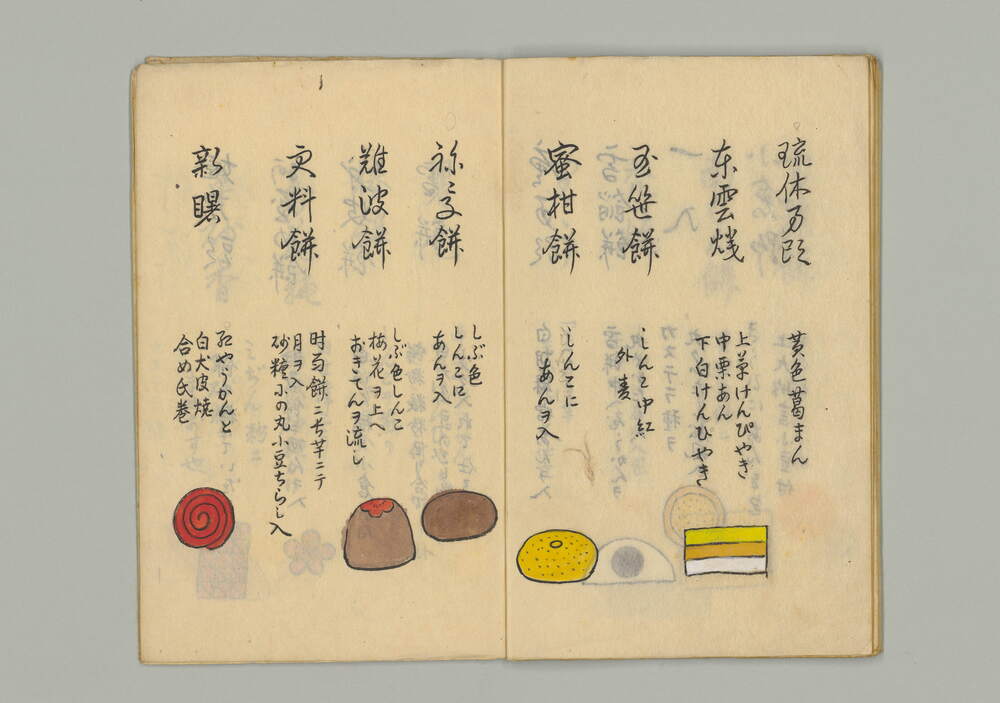 琉球万头
黄色葛まん
东雲焼
上葉けんぴやき
中栗あん
下白けんひやき
玉笹餅
しんこ中紅
外麦
蜜柑餅
しんこに
あんヲ入
祢子餅
しぶ色
しんこに
あんヲ入
難波餅
しぶ色しんこ
梅花ヲ上へ
おきてんヲ流し
更料餅
月ヲ入
砂糖 丸小豆ちらし入
新曙
紅やうかんと
白犬皮焼
合め氏巻